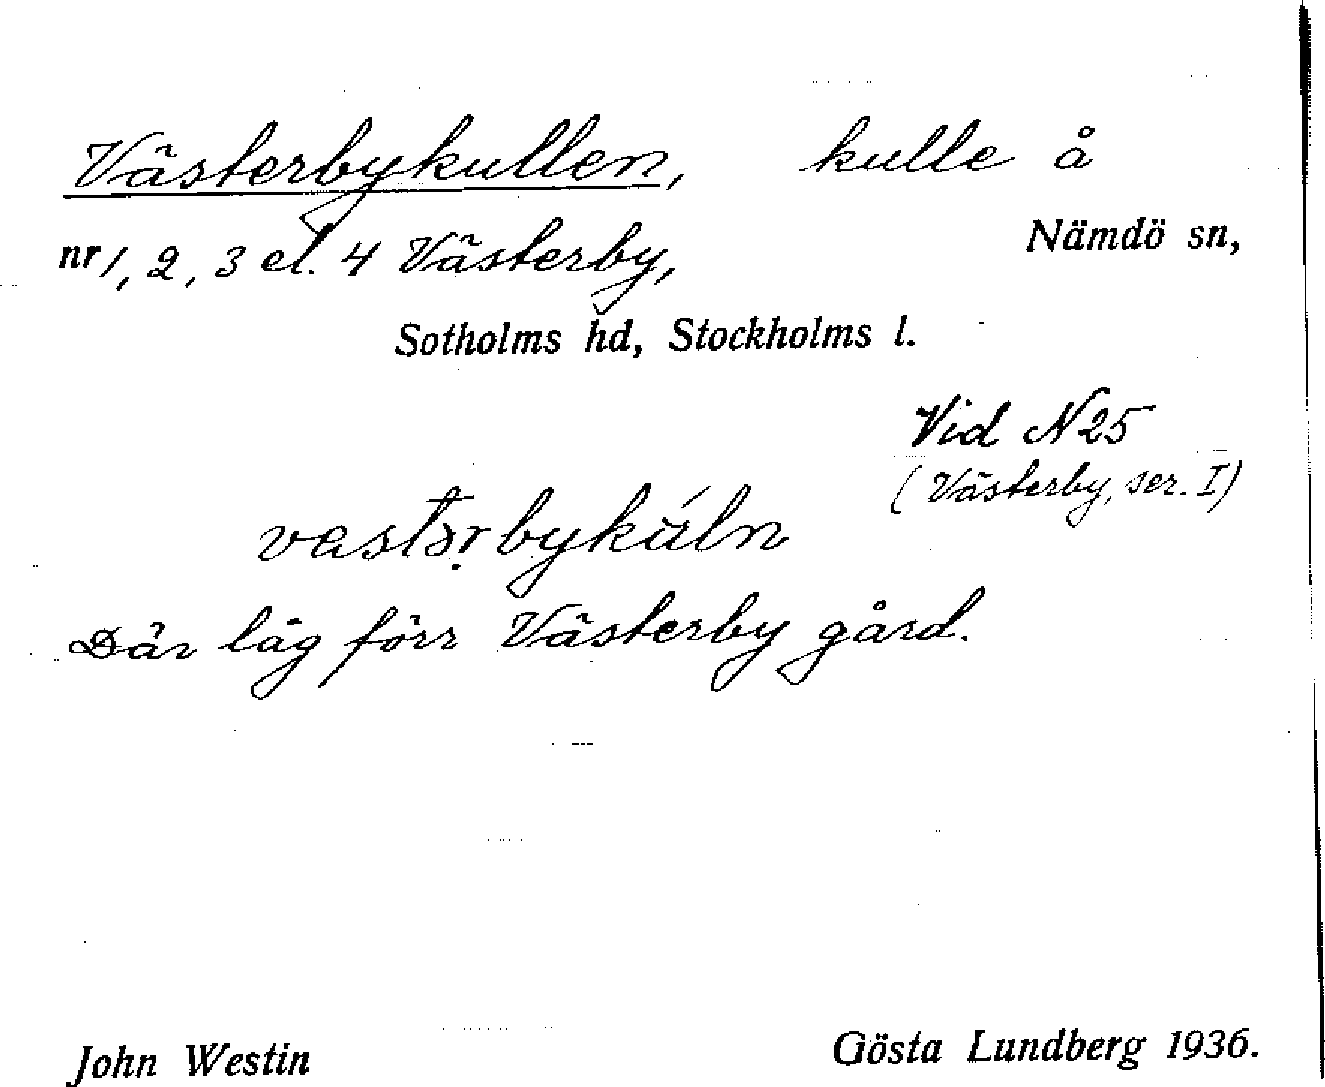 Västerbykullen, kulle å
nr 1, 2, 3 el. 4 Västerby, Nämdö sn,
Sotholms hd, Stockholms l.
Vid N25
(Västerby, ser. I)
Där låg förr Västerby gård.
John Westin Gösta Lundberg 1936.